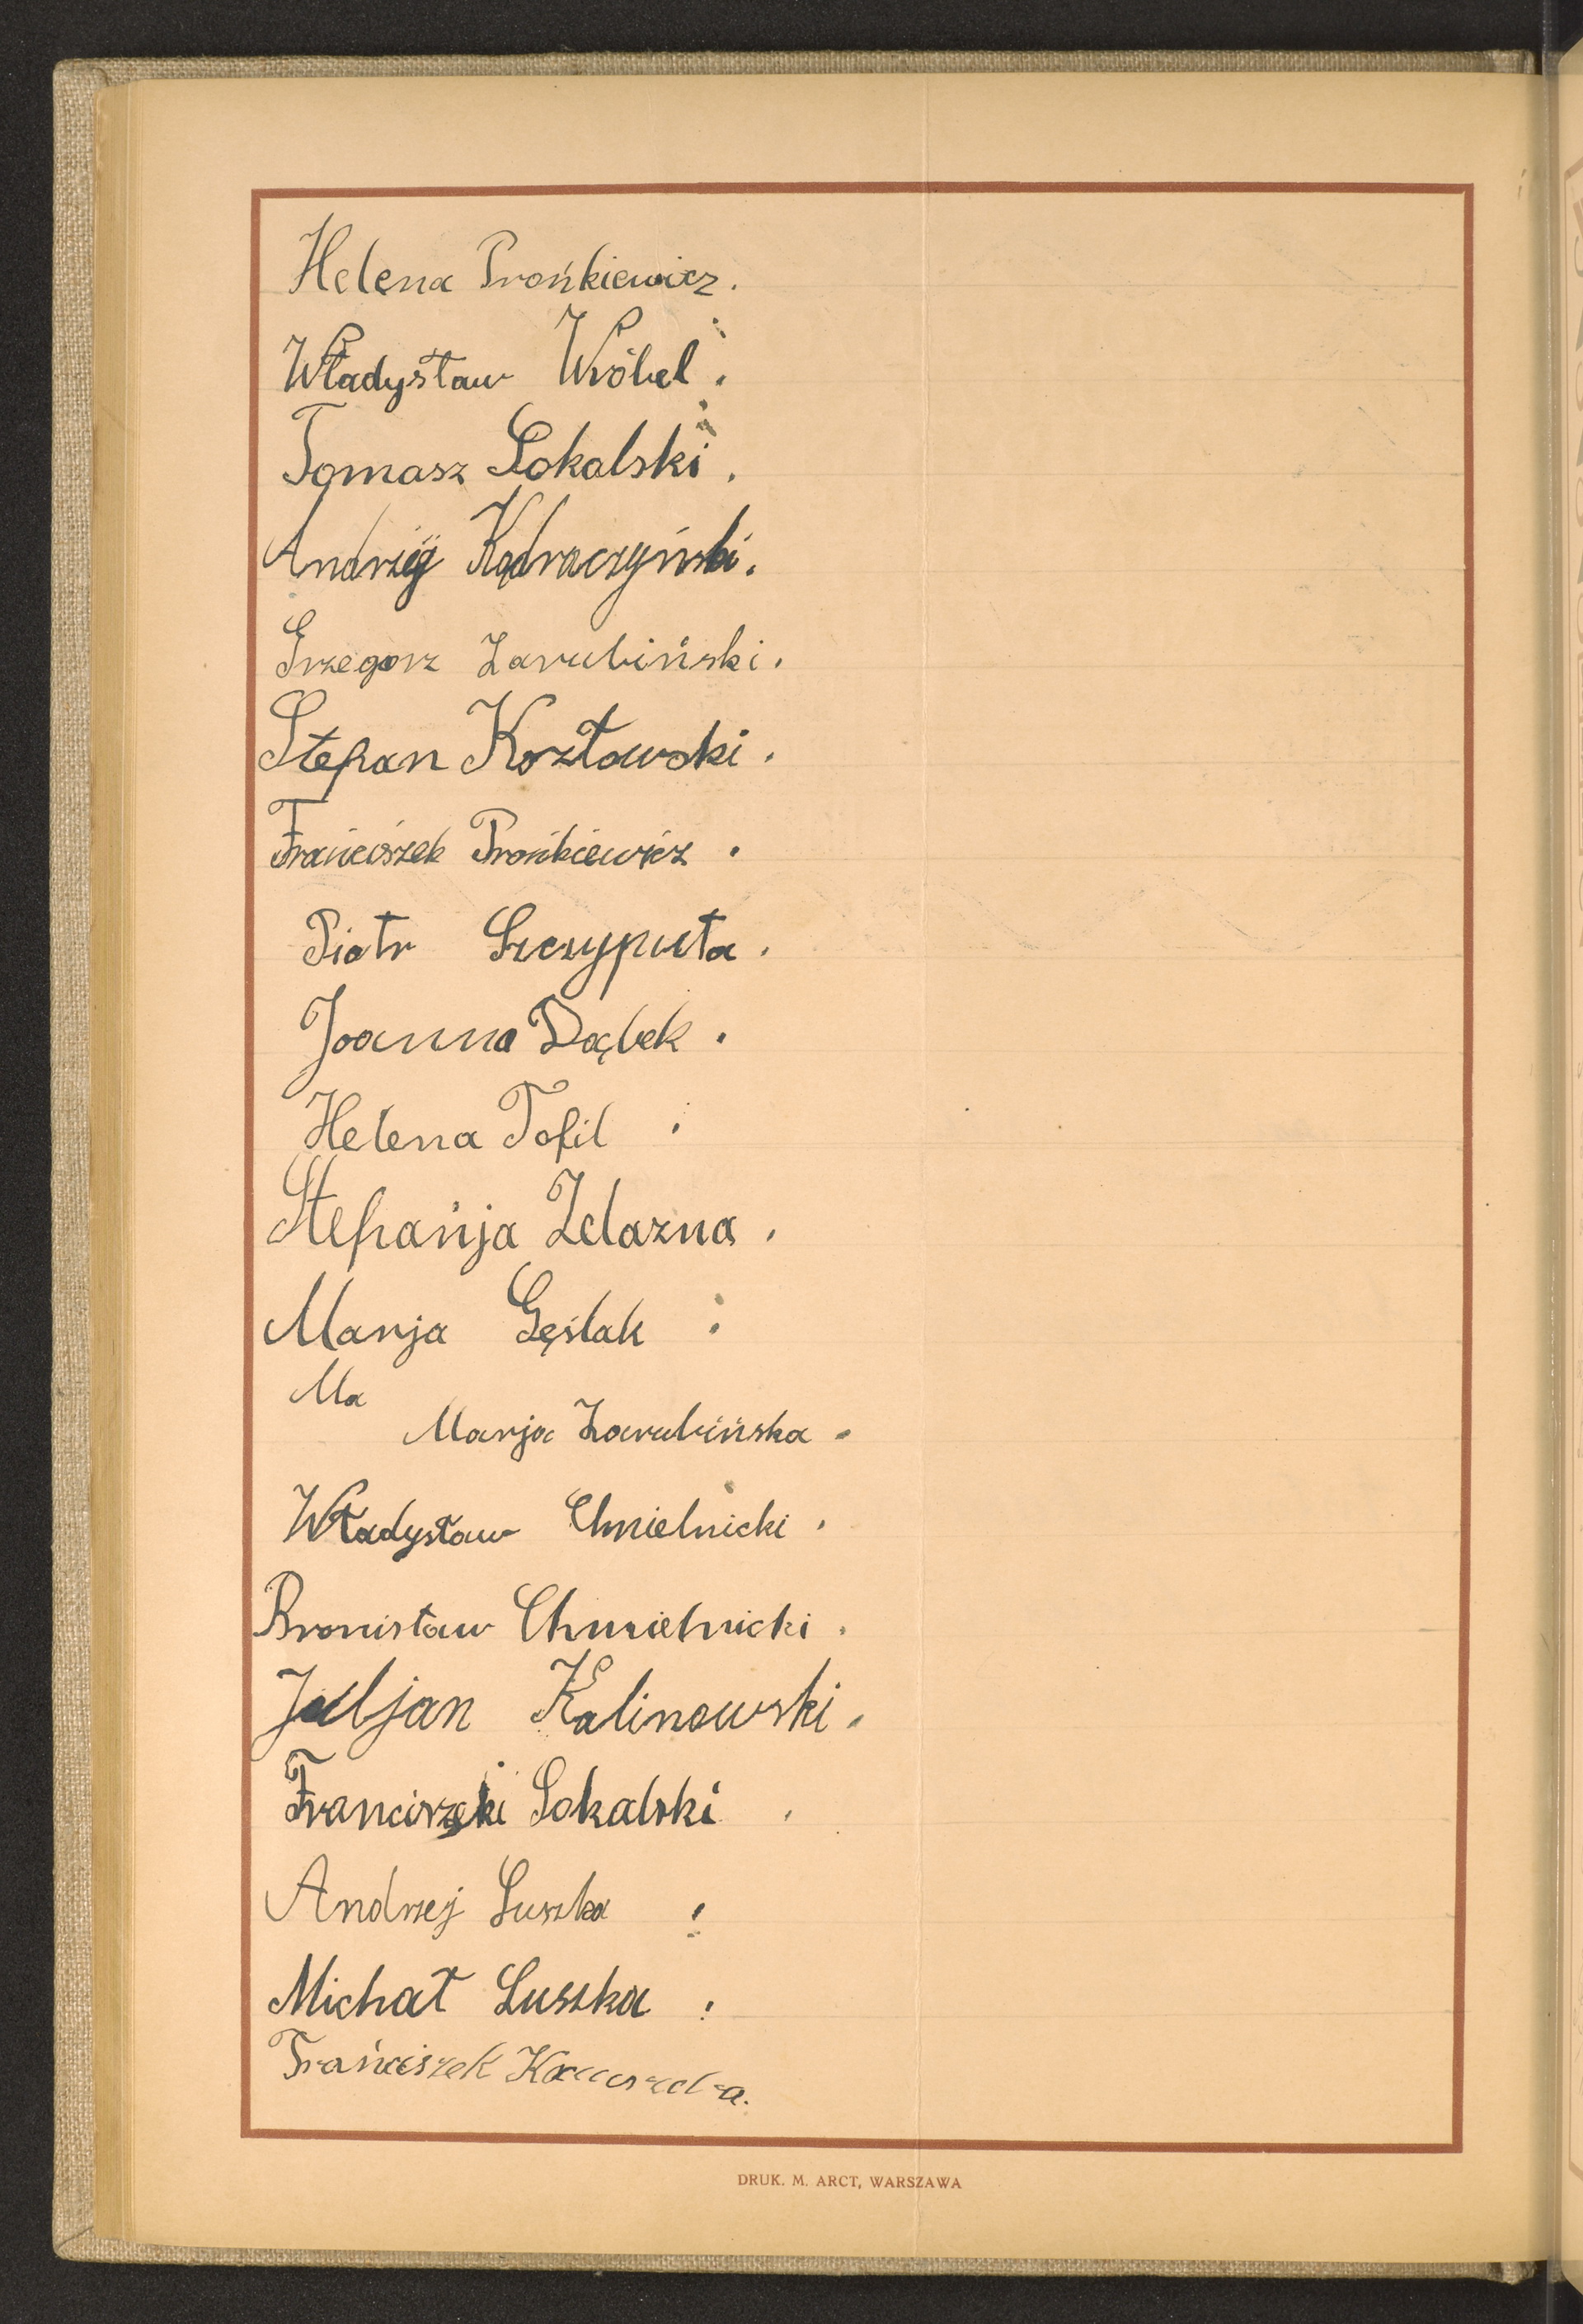 Helena Prońkiewicz.
Władysław Wróbel.
Tomasz Sokalski.
Andrzej Kędraczyński.
Grzegorz Zarubiński.
Stefan Kozłowski.
Franciszek Prońkiewicz.
Piotr Szczyputa.
Joanna Dąbek.
Helena Tofil.
Stefańja Żelazna.
Marja Gęślak.
Ma
Marja Zarubińska.
Władysław Chmielnicki.
Bronisław Chmielnicki.
Juljan Kalinowski.
Franciszek Sokalski.
Andrzej Suszka.
Michał Suszka.
Frańciszek
DRUK. M. ARCT, WARSZAWA